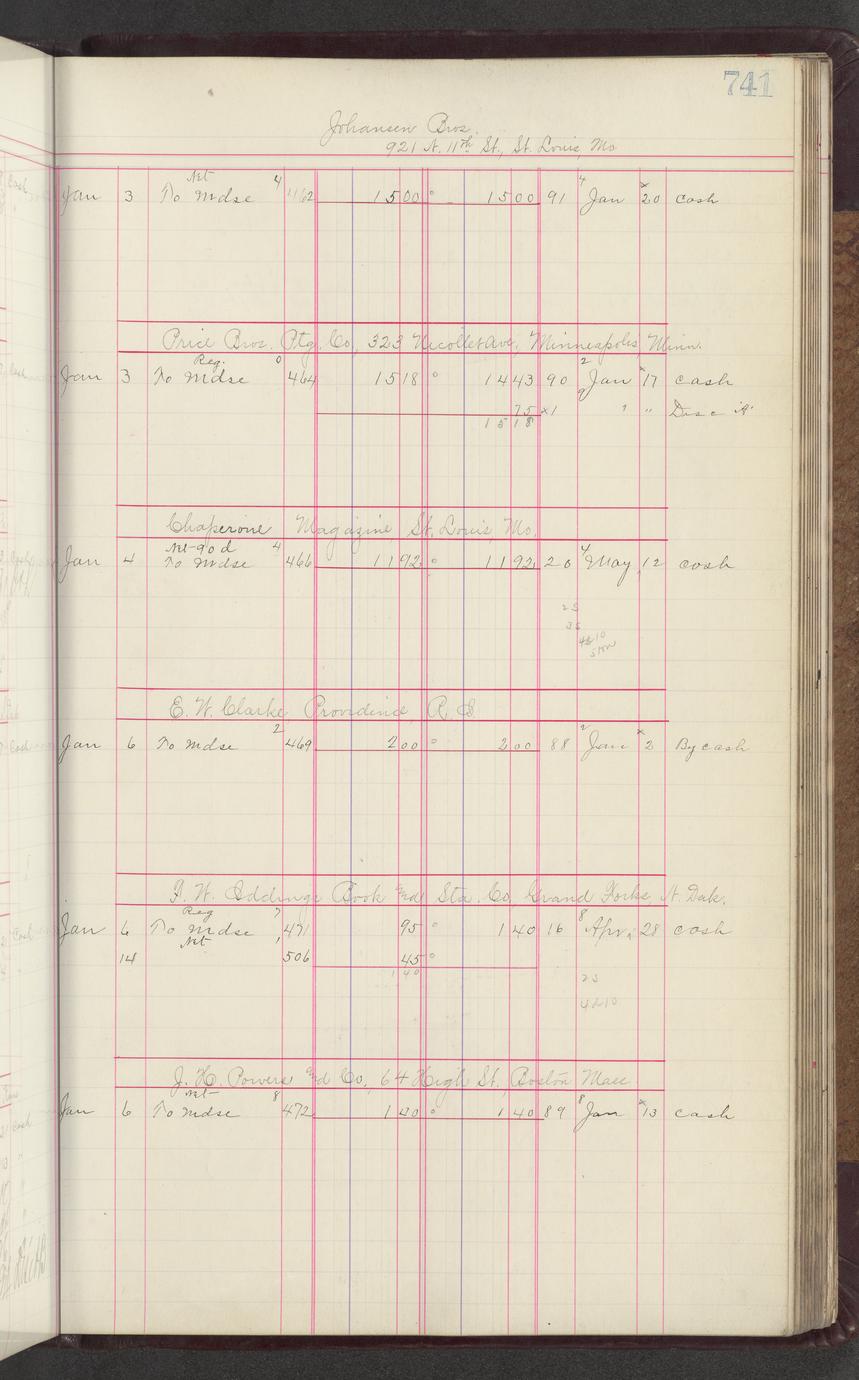 741
Johansen Bros.
921 N. 11th St., St. Louis, Mo
Net 4
Jan 3 To Mdse 462 15 00 ° 15 00 91 4 Jan x 20 cash
Price Bros. Ptg. Co., 323 Nicollet Ave, Minneapolis, Minn.
Reg. 0 2
Jan 3 To Mdse 464 15 18 ° 14 43 90 Jan x 17 cash
75 x1 9 " " Disc
15 18
Chaperone Magazine St. Louis, Mo.
Net 90 d 4 4
Jan 4 To Mdse 466 11 92 ° 11 92 20 May 12 cash
25
35
4210
E. W. Clarke Providence, R. I
2 2
Jan 6 To Mdse 469 2 00 ° 2 00 88 Jan x 2 By cash
Book and Sta. Co, Grand Forks, N. Dak.
Reg 7 8
Jan 6 To Mdse 471 95 ° 1 40 16 Apr. 28 cash
Net 1
14 506 45 °
1 40
25
4210
J. H. Powers and Co., 64 High St., Boston Mass
Net 8 8
Jan 6 To Mdse 472 1 40 ° 1 40 89 Jan x 13 cash